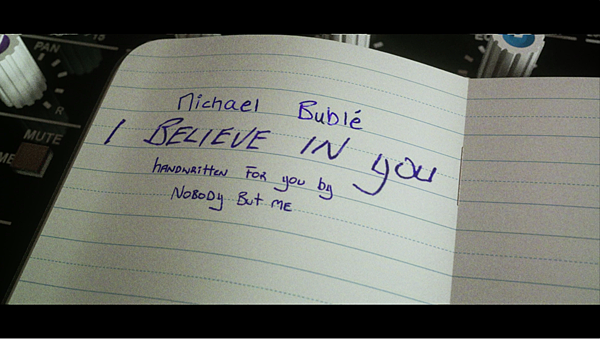 PAN
R
MUTE
Michael Bublé
I BELIEVE IN you
HANDWRITTEN FOR you by
NOBODY But ME